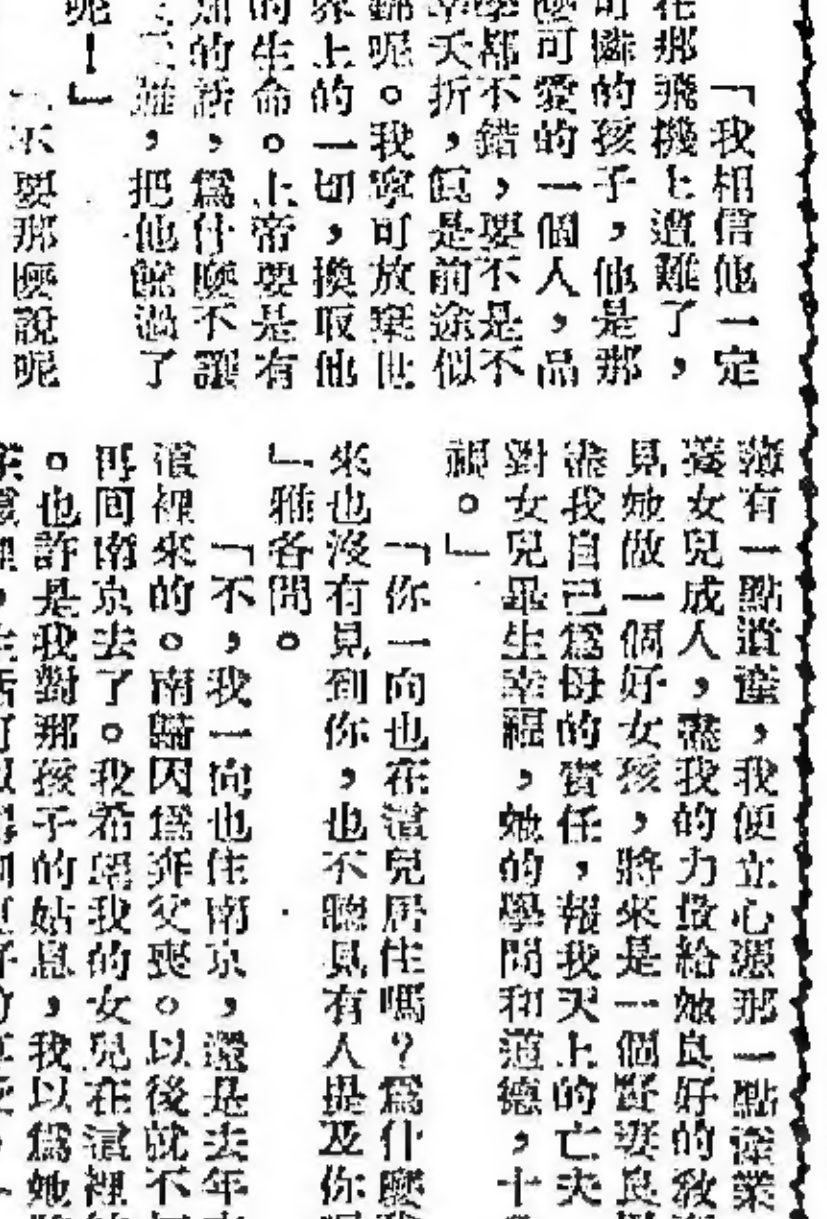 「我相信他一定
在那飛機上遭難了，
可憐的孩子，他是那
麼可愛的一個人，品
學都不錯，要不是不
幸夭折，眞是前途似
錦呢。我寧可放棄世
界上的一切，換取他
的生命。上帝要是有
知的話，爲什麼不讓
，把他饒過了
呢！」
「不要那麼說呢
薄有一點遺產，我便立心憑那一點產業
養女兒成人，盡我的力量給她良好的敎
見她做一個好女孩，將來是一個賢妻良
盡我自己爲母的責任，報我天上的亡夫
對女兒畢生幸福，她的學問和道德，十
視。」
「你一向也在這兒居住嗎？爲什麼我
來也沒有見到你，也不聽見有人提及你呢
」雅各問。
「不，我一向也住南京，還是去年
這裡來的。南歸因爲奔父喪。以後就不
再回南京去了。我希望我的女兒在這裡
。也許是我對那孩子的姑息，我以爲她